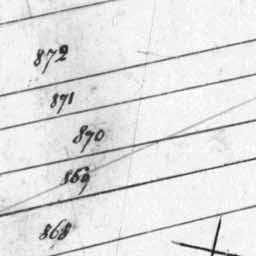 872
871
870
869
868